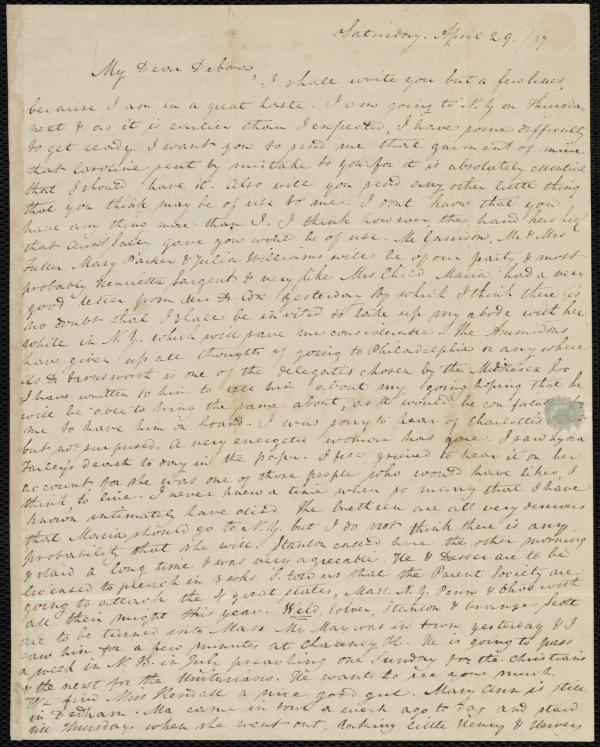 Saturday. April 29. /37
My Dear Debora,
I shall write you but a few lines,
because I am in a great haste. I am going to N. Y on Thursday
next & as it is earlier than I expected, I have some difficulty
to get ready. I want you to send me that garment of mine
that Caroline sent by mistake to you for it is absolutely essential
that I should have it. Also will you send any other little thing
that you think may be of use to me. I dont know that you
have any thing more than I. I think however the hand kerchief
that Aunt gave you wont be of use. Mr Garrison, Mr & Mrs
Fuller, Mary Parker & Julia Williams will be of our party, & most
probably Henrietta Sargent & very like Mrs Child. Maria had a very
good letter from Mrs Dr Cox yesterday by which I think there is
no doubt that I shall be invited to take up my abode with her
while in N. Y. which will save me considerable. The Ammidons
have given up all thoughts of going to Philadelphia or any where
As Dr Farnsworth is one of the delegates chosen by the Middlesex Soc
I have written to him to tell him about my going hoping that he
will be able to bring the same about, as it would be comfortable to
me to have him on board. I was sorry to hear of Charlotte's
but not surprised. A very energetic woman has gone. I saw Lydia
Farley's death to day in the paper. I feel grieved to hear it on her
account for she was one of those people who would have liked, I
think to live. I never knew a time when so many that I have
known intimately have died. The brethren are all very desirous
that Maria should go to N. Y. but I do not think there is any
probability that she will. Stanton called here the other morning
& staid a long time & was very agreeable. He & are to be
licensed to preach in 3 wks. S. told us that the Parent Society are
going to attack the 4 great states, Mass. N. Y. Penn & Ohio with
all their might this year. Weld, Colver, Stanton & Orange Scott
are to be turned into Mass. Mr May was in town yesterday & I
saw him for a few minutes at Chauncy Pl. He is going to pass
a week in N. B. in July preaching one Sunday for the Christians
& the next for the Unitarians. He wants to see you much
We find Miss Kendall a nice good girl. Mary Ann is still
in Dedham. Ma came in town a week ago to day and staid
till Thursday when she went out, taking little Henry & Hervey